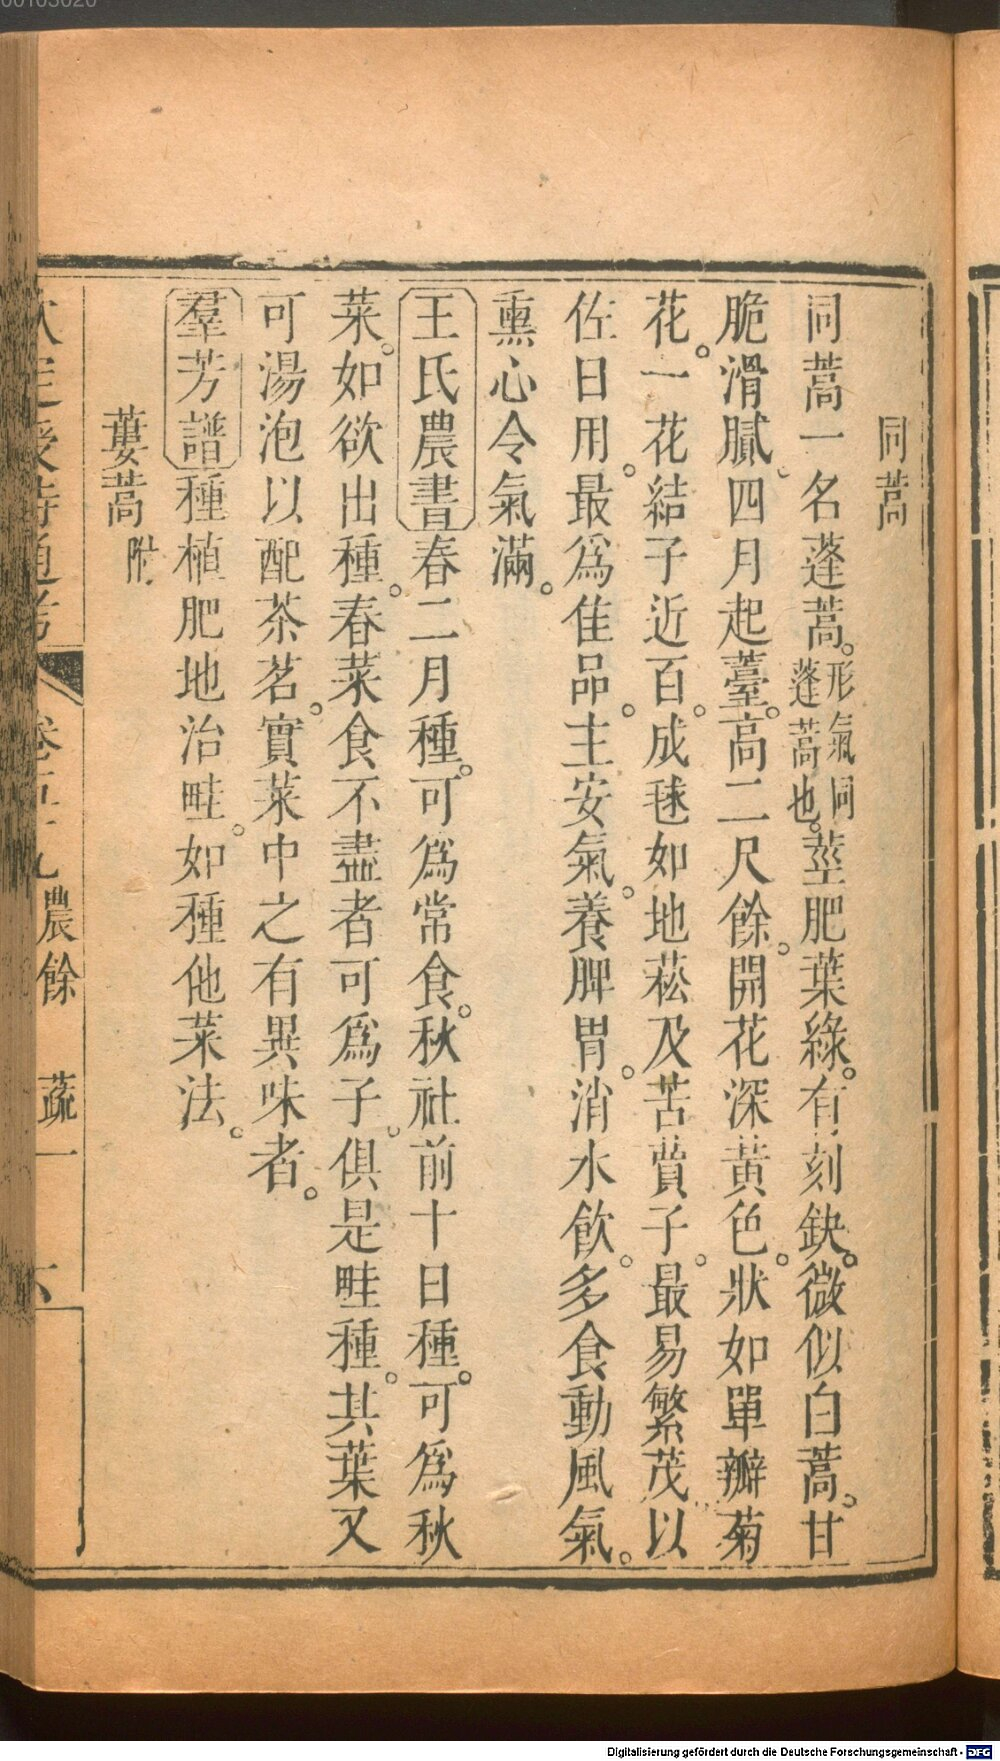 00103020
同蒿
同蒿一名蓬蒿。形氣同蓬蒿也。莖肥葉綠。有刻鈌。微似白蒿。甘
脆滑膩。四月起薹。高二尺餘。開花深黃色。狀如單瓣菊
花。一花結子近百。成毬如地菘及苦蕒子。最易繁茂。以
佐日用。最爲佳品。主安氣。養脾胃。消水飲。多食動風氣。
熏心令氣滿。
王氏農書春二月種。可爲常食。秋社前十日種。可爲秋
菜。如欲出種。春菜食不盡者可爲子。俱是畦種。其葉又
可湯泡以配茶茗。實菜中之有異味者。
羣芳譜種植肥地治畦。如種他菜法。
蔞蒿附
欽定授時通考 卷五十九 農餘 蔬一 六
Digitalisierung gefördert durch die Deutsche Forschungsgemeinschaft - DFG